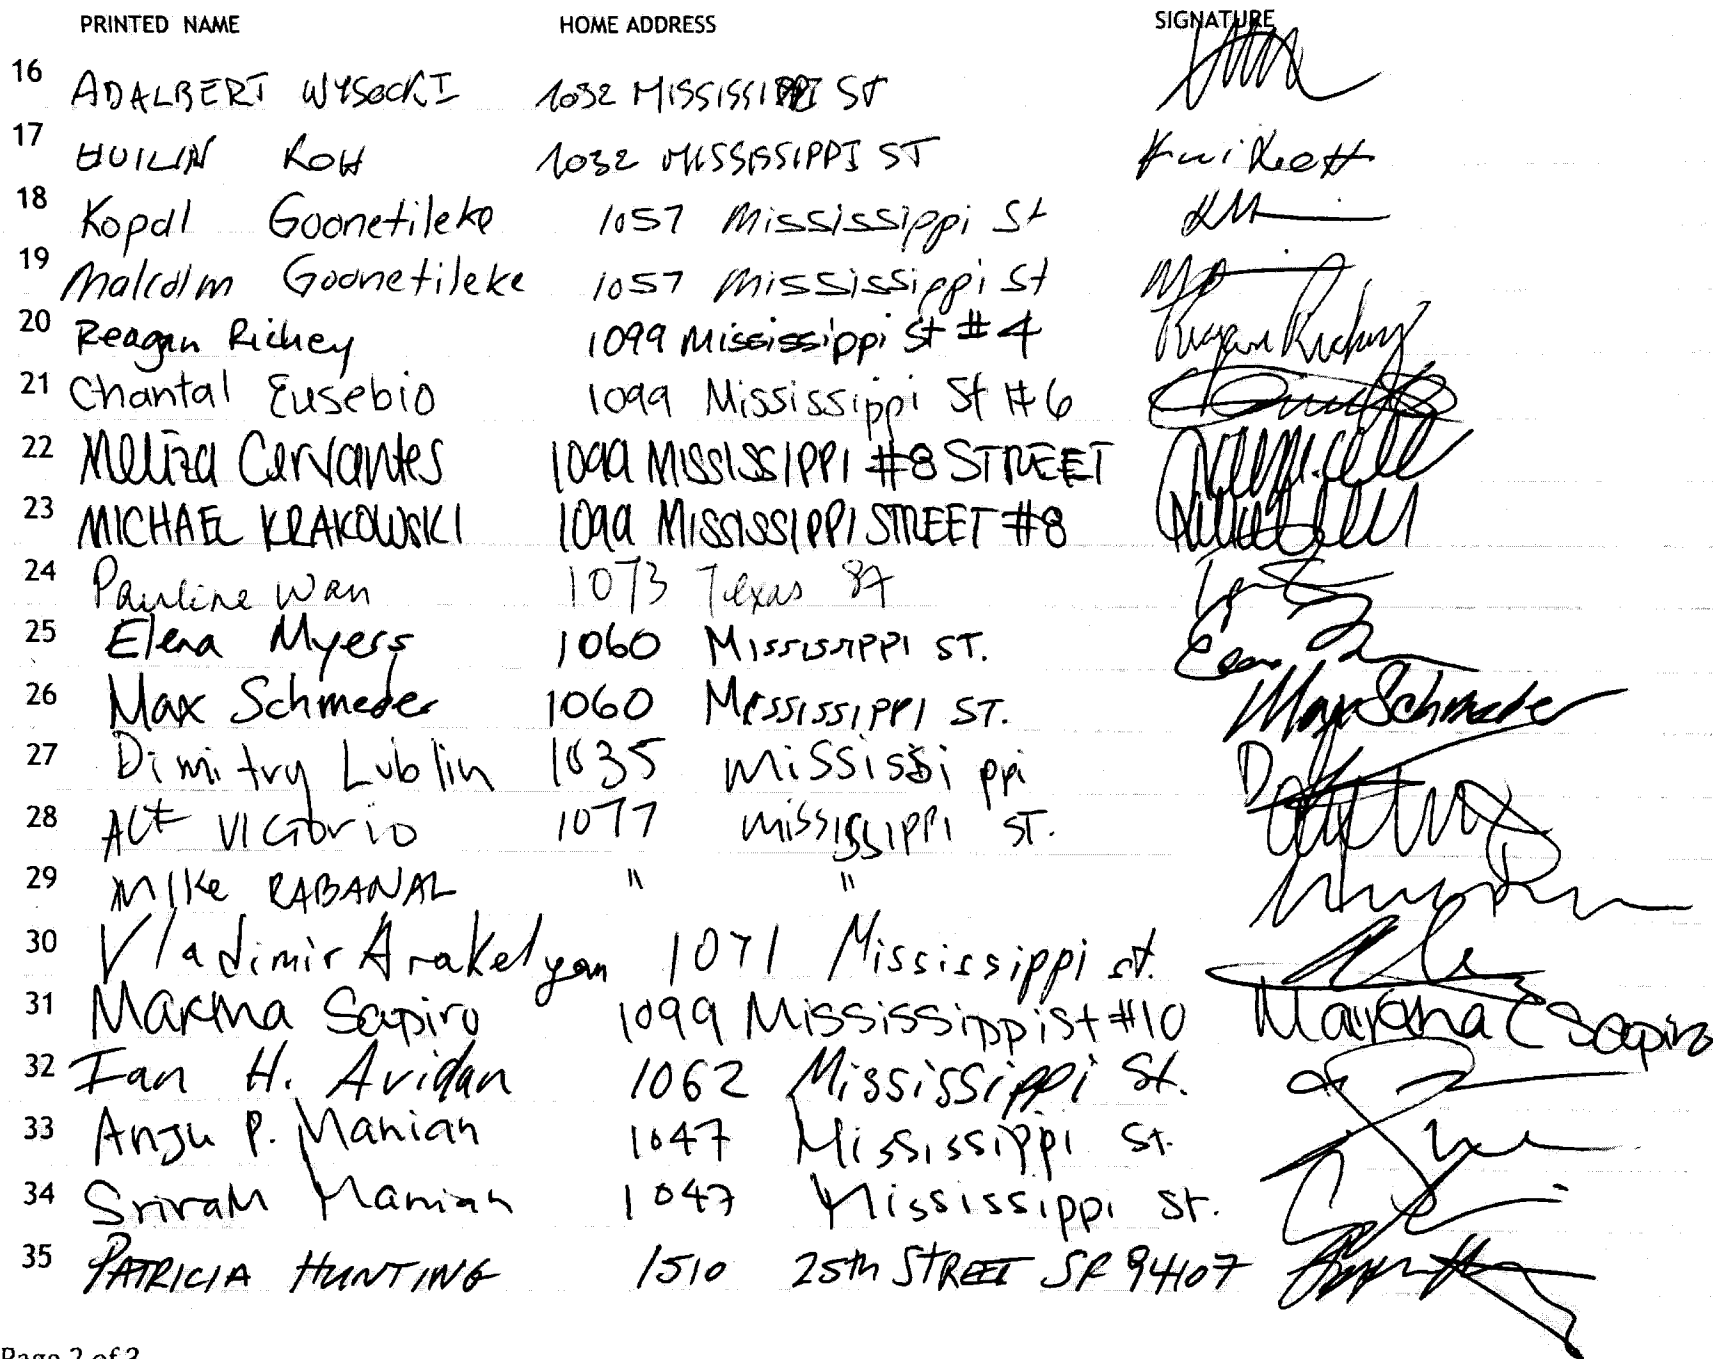 PRINTED NAME HOME ADDRESS SIGNATURE
16 ADALBERT WYSOCKI 1032 MISSISSIPPI ST
17 HUILIN KOH 1032 MISSISSIPPI ST
18 Kopal Goonetileke 1057 Mississippi St
19 Malcolm Goonetileke 1057 Mississippi St
20 Reagan Richey 1099 Mississippi St #4 Reagan Richey
21 Chantal Eusebio 1099 Mississippi St #6
22 Meliza Cervantes 1099 MISSISSIPPI #8 STREET
23 MICHAEL KRAKOWSKI 1099 MISSISSIPPI STREET #8
24 Pauline Wan 1073 Texas St
25 Elena Myers 1060 Mississippi ST.
26 Max Schmeder 1060 Mississippi ST. Max Schmeder
27 Dimitry Lublin 1035 Mississippi
28 Alf VIGtorio 1077 Mississippi ST.
29 Mike RABANAL " "
30 Vladimir Arakelyan 1071 Mississippi st.
31 Marina Sapiro 1099 Mississippi st #10 Sapiro
32 Ian H. Avidan 1062 Mississippi St.
33 Anju P. Manian 1047 Mississippi St.
34 Sriram Manian 1047 Mississippi St.
35 PATRICIA HUNTING 1510 25th STREET SF 94107
Page 2 of 3